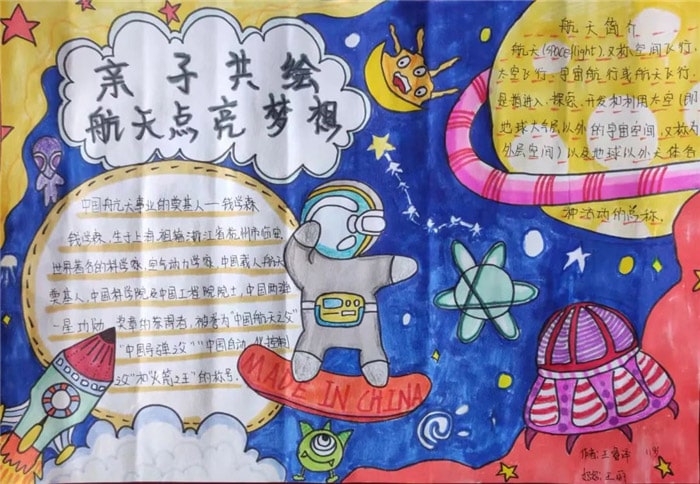 亲子共绘
航天点亮梦想
航天简介
航天(spaceflight),又称空间飞行、
太空飞行、宇宙航行或航天飞行,
是指进入、探索、开发和利用太空(即
地球大气层以外的宇宙空间,又称为
外层空间)以及地球以外天体各
种活动的总称.
中国航天事业的奠基人——钱学森
钱学森,生于上海,祖籍浙江省杭州市临安
世界著名的科学家,空气动力学家,中国载人航天
奠基人,中国科学院及中国工程院院士,中国两弹
一星功勋 奖章的获得者,被誉为"中国航天之父"
"中国导弹之父""中国自动化控制
之父"和"火箭之王"的称号.
MADE IN CHINA
作者:王
妈妈:王